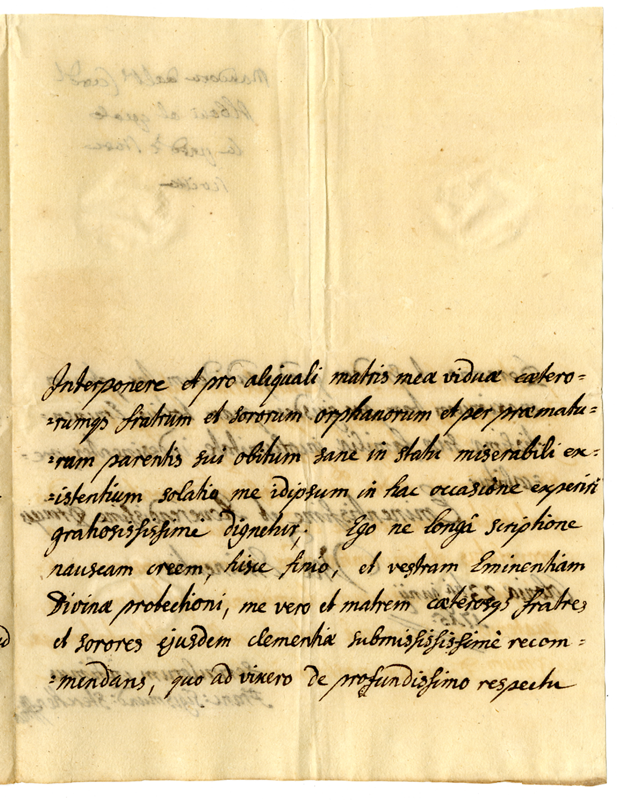 Interponere et pro aliquali matris meæ viduæ cætero=
=rumqs fratrum et sororum orphanorum et per præmatu=
=ram parentis sui obitum sane in statu miserabili ex=
=istentium solatio me idipsum in hac occasione experiri
gratiosissississime dignetur; Ego ne longâ scriptione
nauseam creem, hisce finio, et vestram Eminentiam
Divinæ protectioni, me vero et matrem cæterosqs fratres
et sorores ejusdem clementiæ submississississimè recom=
=mendans, quo ad vixero de profundissimo respectu